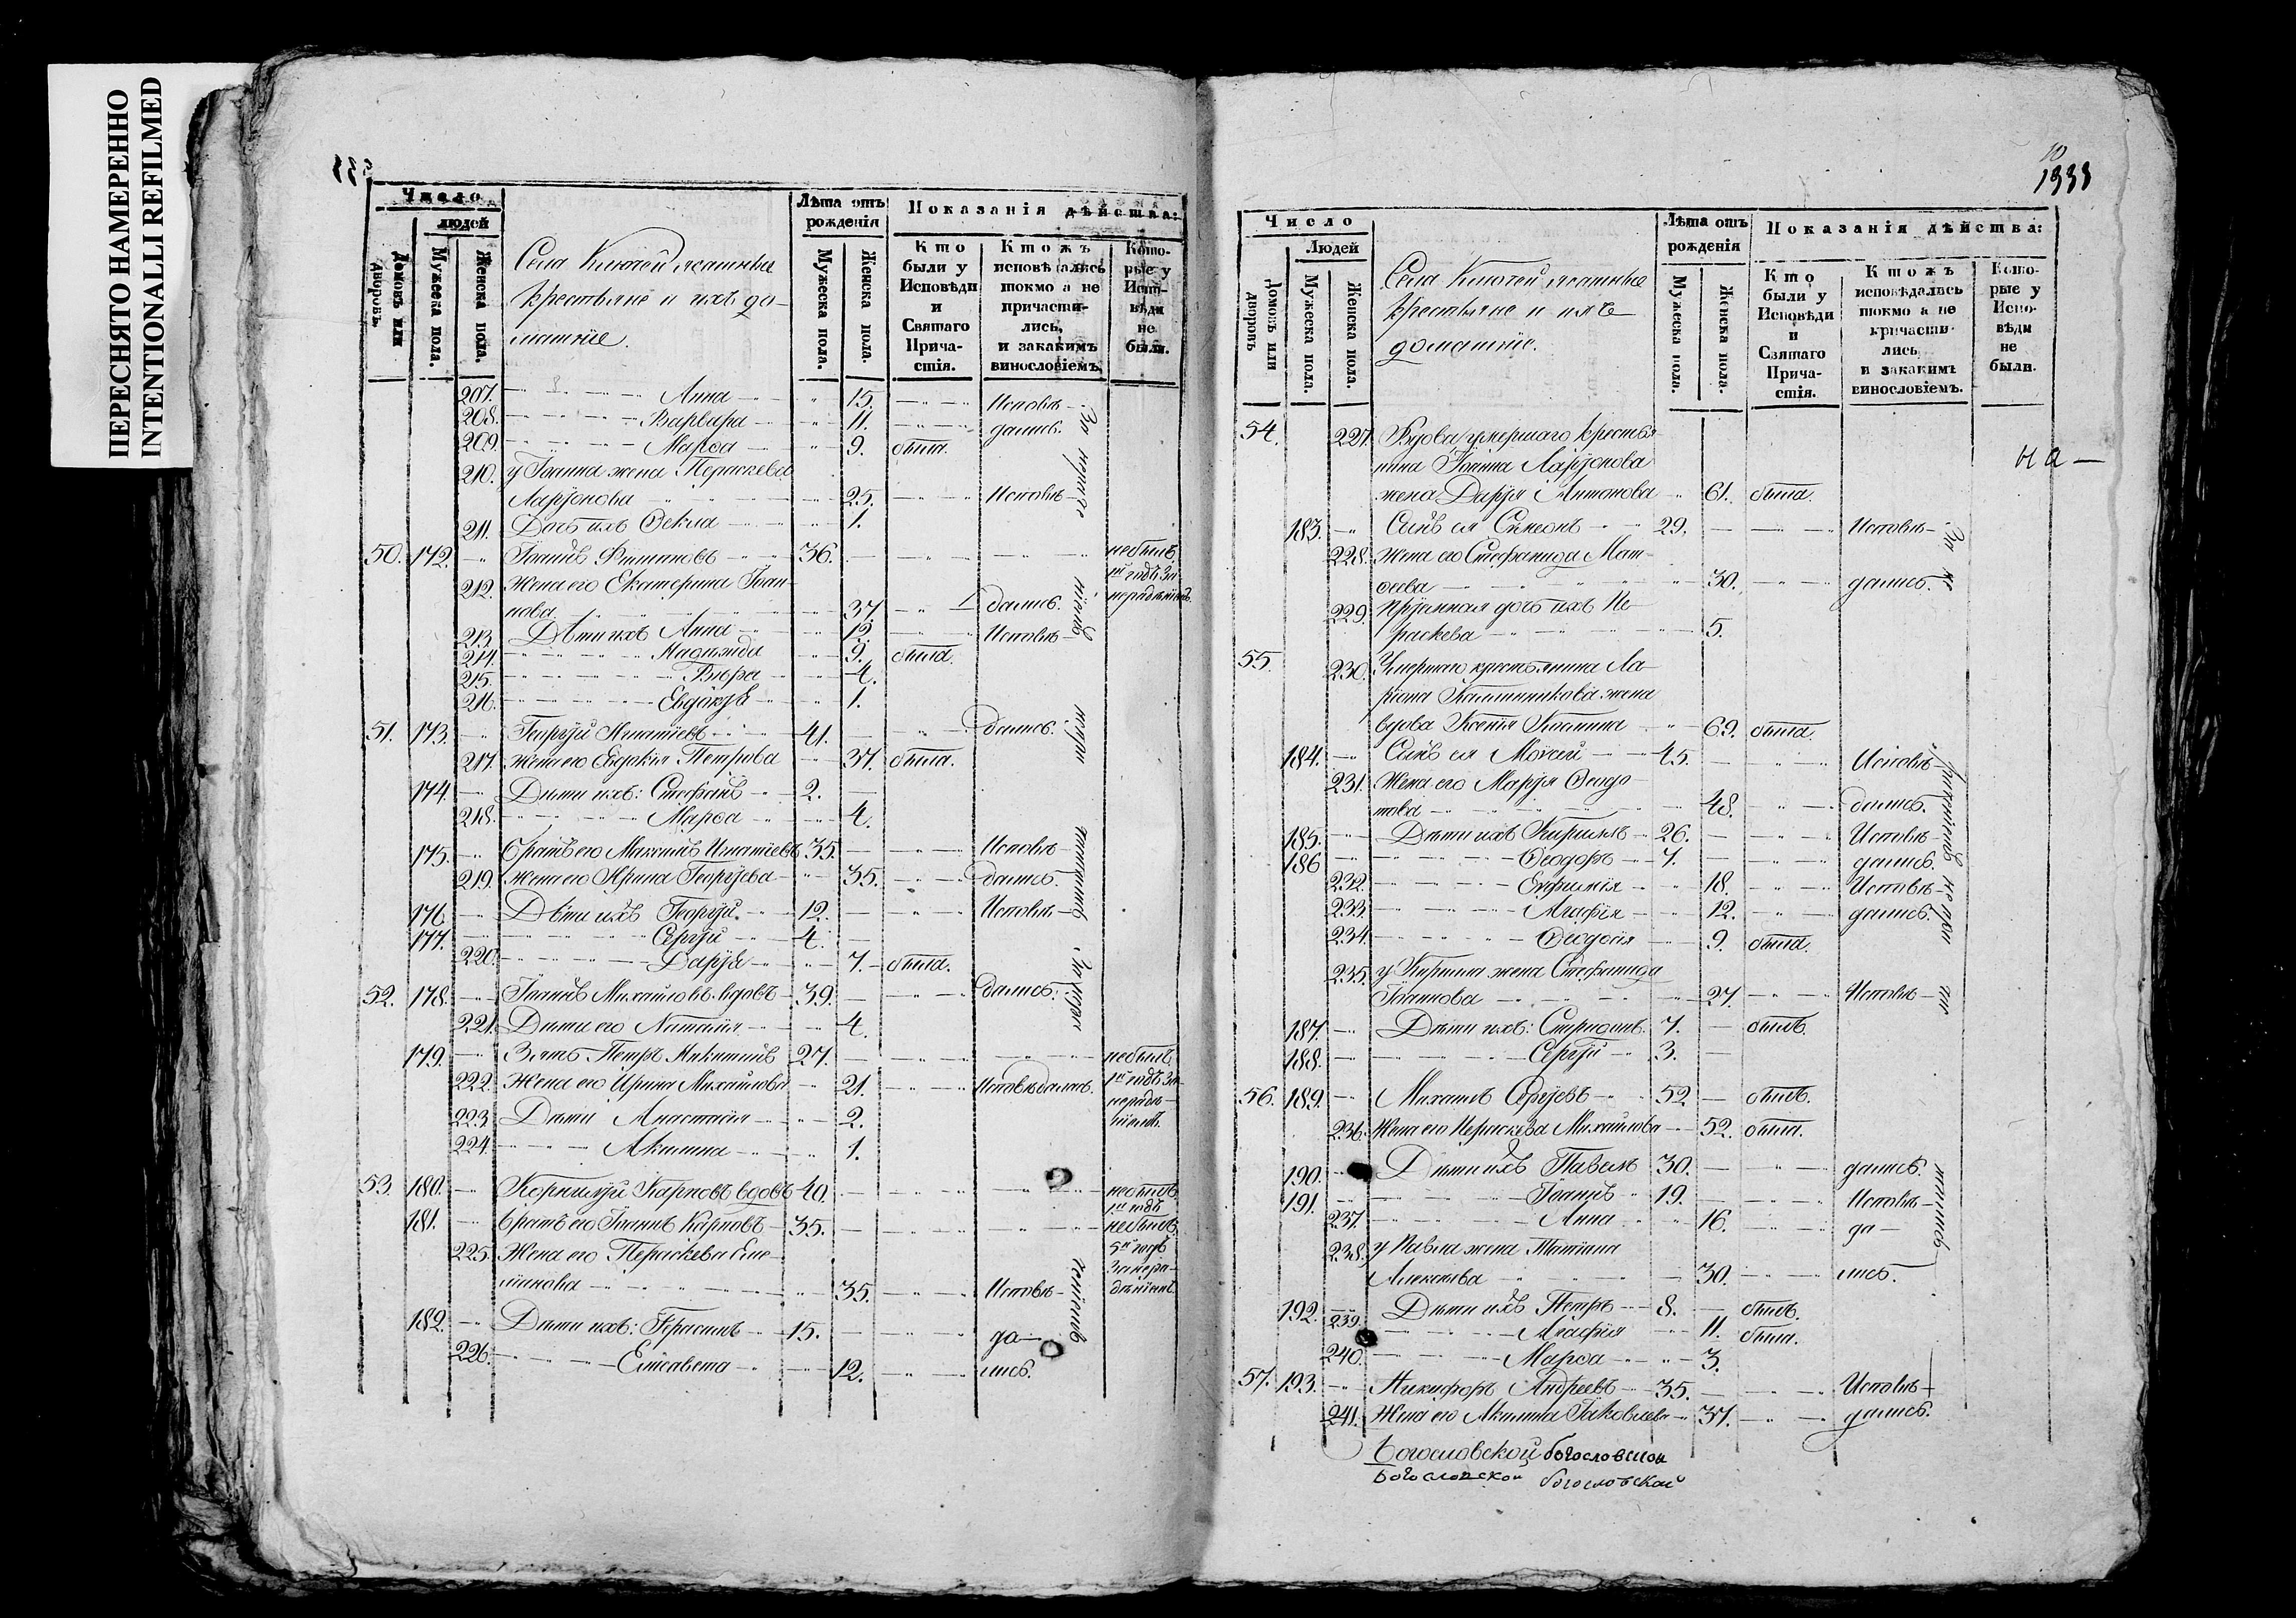 ПЕРЕСНЯТО НАМЕРЕННО
INTENTIONALLI REFILMED
Число
людей
Домовъ или дворовъ.
Мужеска пола.
Женска пола.
Села Ключей ясашные
крестьяне и ихъ до-
машніе.
Лѣта отъ рожденія
Мужеска пола.
Женска пола.
Показанія дѣйства:
Кто были у Исповѣди и Святаго Прича-стія.
Ктожъ исповѣдались токмо а не причасти-лись, и закакимъ винословіемъ.
Кото-рые у Испо-вѣди не были.
207. Анна 15. Исповѣ-
208. Варвара 11. дались.
209. Марѳа 9. была.
210. у Іоанна жена Параскева
Ларіонова 25. Исповѣ-
211. Дочь ихъ Ѳекла 1.
50. 172. Іоаннъ 36. небылъ
212. Жена его Екатерина Іоан-
нова 37. дались.
213. Дѣти ихъ Анна 12. Исповѣ-
214. Надежда 9. была.
215. 4.
216. Евдокія 1.
51. 173. Георгій Игнатіевъ 41. дались.
217. Жена его Евдокія Петрова 37. была.
174. Дѣти ихъ: Стефанъ 2.
218. Марѳа 4.
175. Братъ его Максимъ Игнатіевъ 35. Исповѣ-
219. Жена его Ирина Георгіева 35. дались.
176. Дѣти ихъ Георгій 12. Исповѣ-
177. Сергій 4.
220. Дарія 7. была.
52. 178. Іоаннъ Михайловъ вдовъ 39. дались.
221. Дѣти его Наталія 4.
179. Зять Петръ Никитинъ 27. небылъ
222. Жена его Ирина Михайлова 21. Исповѣдалась.
223. Дѣти Анастасія 2.
224. Акилина 1.
53. 180. Корнилій Карповъ вдовъ 40. небылъ
181. Братъ его Іоаннъ Карповъ 35. небылъ
225. Жена его Параскева Еме-
ліанова 35. Исповѣ-
182. Дѣти ихъ: Герасимъ 15. да-
226. Елисавета 12. лись.
10
1338
Число
Людей
Домовъ или дворовъ
Мужеска пола.
Женска пола.
Села Ключей ясашные
крестьяне и ихъ
домашніе.
Лѣта отъ рожденія
Мужеска пола.
Женска пола.
Показанія дѣйства:
Кто были у Исповѣди и Святаго Прича-стія.
Ктожъ исповѣдались токмо а не причасти-лись и закакимъ винословіемъ.
Кото-рые у Испо-вѣди не были.
54. 227. Вдова умершаго крестья-
нина Іоанна Ларіонова
жена Дарія Антонова 61. была.
183. Сынъ ея Симеонъ 29. Исповѣ-
228. Жена его Стефанида Мат-
ѳеева 30. дались.
229. Пріемная дочь ихъ Па-
раскева 5.
55. 230. Умершаго крестьянина Ла-
ріона Калинникова жена
вдова Ксенія 69. была.
184. Сынъ ея Моисей 45. Исповѣ-
231. Жена его Марія Ѳедо-
това 48. дались.
185. Дѣти ихъ Кириллъ 26. Исповѣ-
186 Ѳеодоръ 7. дались.
232. Евфимія 18. Исповѣ-
233. Агафія 12. дались.
234. Ѳеодосія 9. была.
235. у Кирилла жена Стефанида
Іоаннова 27. Исповѣ-
187. Дѣти ихъ: Спиридонъ 7. былъ.
188. Сергій 3.
56. 189. Михаилъ Сергіевъ 52 былъ.
236. Жена его Параскева Михайлова 52. была.
190. Дѣти ихъ Павелъ 30. дались.
191. Іоаннъ 19. Исповѣ-
237. Анна 16. да-
238. у Павла жена Татіана
Алексѣева 30. лись.
192. Дѣти ихъ Петръ 8. былъ.
239. Агафія 11. была.
240. Марѳа 3.
57. 193. Никифоръ Андреевъ 35. Исповѣ-
241. Жена его Акилина Іаковлева 37. дались.
на-
Богословской богословской
Богословской богословской